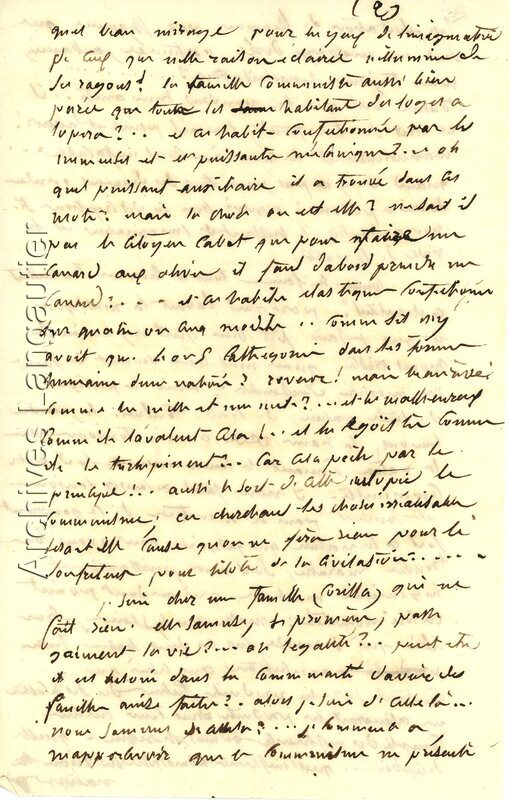 (2)
quel beau mirage pour les yeux de l'imagination
de ceux que nulle raison éclairée n'illumine de
ses rayons! la famille communiste aussi bien
parée que toute les habitant des loges a
lopera?... et ces habits confectionnés par les
immenses et et puissantes mécaniques?... oh
quel puissant auxiliaire il a trouvé dans ces
mots! mais la chose ou est elle? ne sait il
pas le Citoyen Cabet que pour faire un
canard aux olives il faut dabord prendre un
canard?.... et ces habits elastiques confectionnés
sur quatre ou cinq modèles.. comme sil n'y
avoit que 4 ou 5 cathegories dans les formes
humaine dune nation? reveur! mais
comme les mille et une nuits?... et les malheureux
comme ils avalent cela!... et les égoïstes comme
ils le Car cela pèche par le
principe!... aussi le sort de cette utopie le
communisme, en cherchant les choses irréalisables
sera-t-elle cause quon ne fera rien pour le
pour de la civilisation.....
je suis chez une famille qui ne
fait rien. elle s'amuse, se promène, passe
gaiment la vie?... ou legalité?.. peut etre
il est besoin dans la communauté d'avoir des
familles ainsi faites?. alors je suis de celle là...
nous sommes?... je commence a
mappercevoir que le communisme ne présente
Archives Langautier